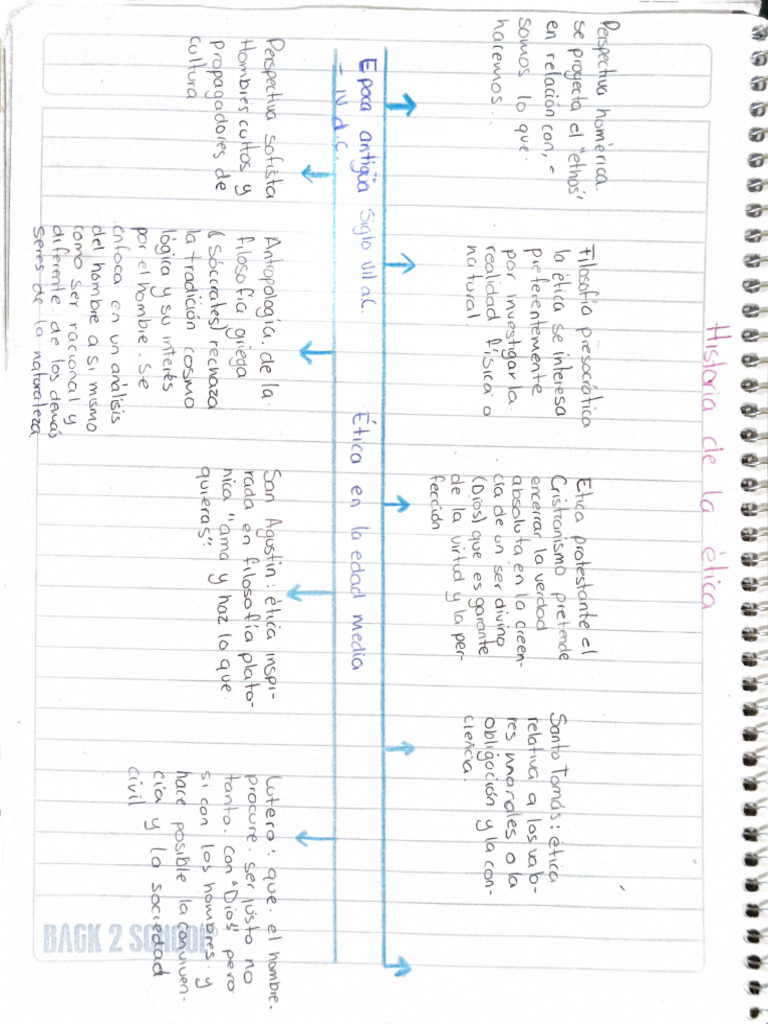 Historia de la ética
Perspectiva homérica.
se proyecta el "ethos",
en relación con, "
somos lo que.
haremos...
Filosofía presocrática
la ética se interesa
preferentemente
por investigar la.
realidad física o
natural.
Etica protestante el
Cristianismo pretende
encerrar la verdad
absoluta en la creen-
cia de un ser divino
(Dios) que es garante
de la virtud y la per-
fección
Santo Tomás: ética
relativa a los valo-
res morales o la
obligación y la con-
ciencia.
Epoca antigüa Siglo VII a.C.
- IV d.C.
Ética en la edad media
Perspectiva sofista
Hombres cultos y
propagadores de
cultura
Antropología de la.
filosofía griega
(sócrates) rechaza
la tradición cosmo
lógica y su interés
por el hombre. Se
enfoca en un análisis
del hombre a si mismo
como ser racional y
diferente de los demás
seres de la naturaleza
San Agustin: ética inspi-
rada en filosofía plato-
nica "ama y haz lo que
quieras".
Lutero: que el hombre.
procure. ser justo no
tanto. con "Dios" pero
si con los hombres. y
hace posible la conviven-
cia y la sociedad
civil
BACK 2 SCHOOL